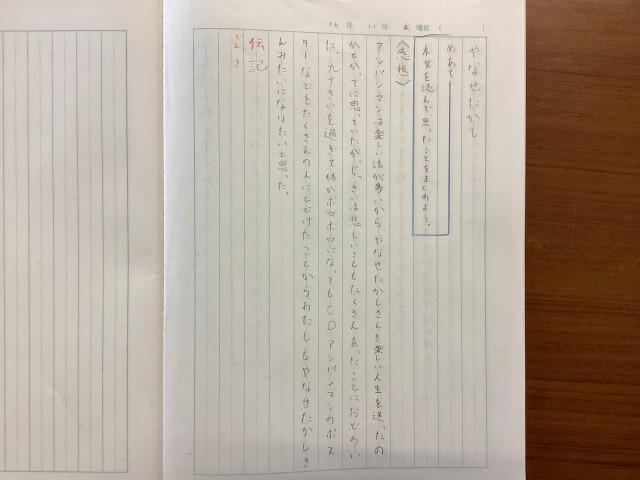 12月11日 火曜日( )
やなせたかし
めあて
本文を読んで思ったことをまとめよう。
〈感想〉
アンパンマンは楽しい話が多いから、やなせたかしさんも楽しい人生を送ったの
かなって思っていたが、じっさいは悲しいこともたくさんあったことにおどろい
た。九十さいを過ぎて体がボロボロになってもCDアンパンマンのポス
ターなどもたくさんの人にとどけたことからわたしもやなせたかしさ
んみたいになりたいと思った。
伝記
でんき